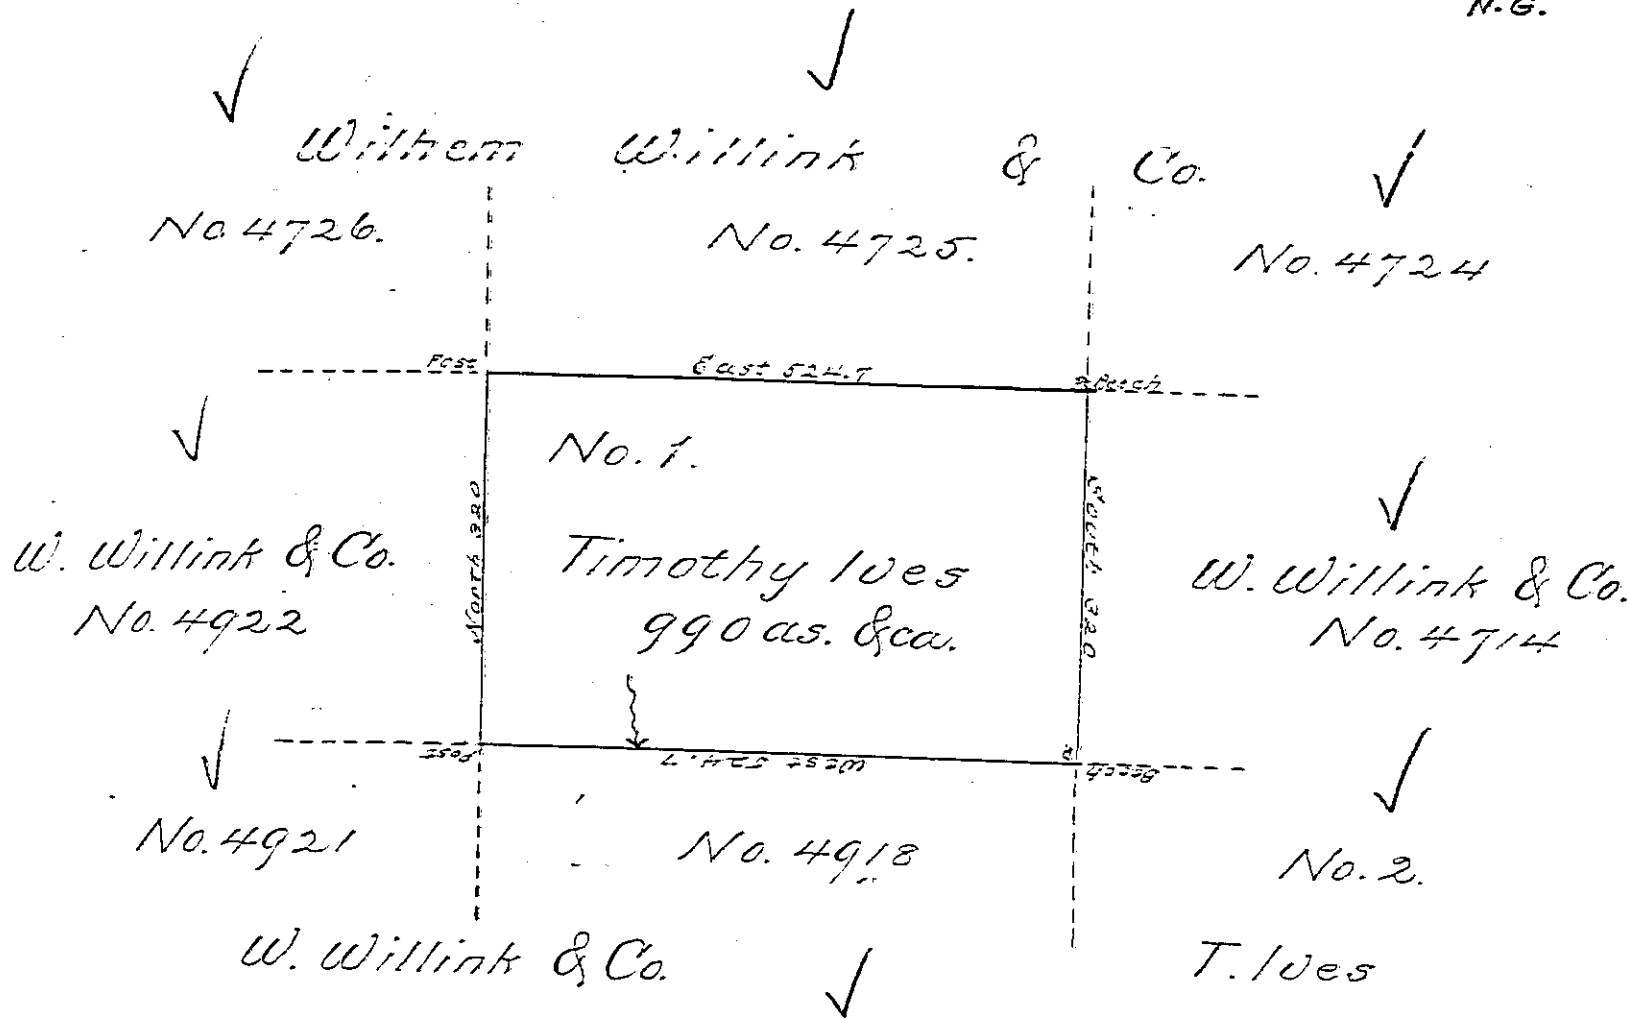 N.G.
Wilhem Willink & Co.
No. 4726.
No. 4725.
No. 4724
Post
East 524.7
Beech
No. 1.
North 320
South 320
W. Willink & Co.
No. 4922
Timothy Ives
990 as. &ca.
W. Willink & Co.
No. 4714
Post
West 524.7
Beech
No. 4921
No. 4918
No. 2.
W. Willink & Co.
T. Ives